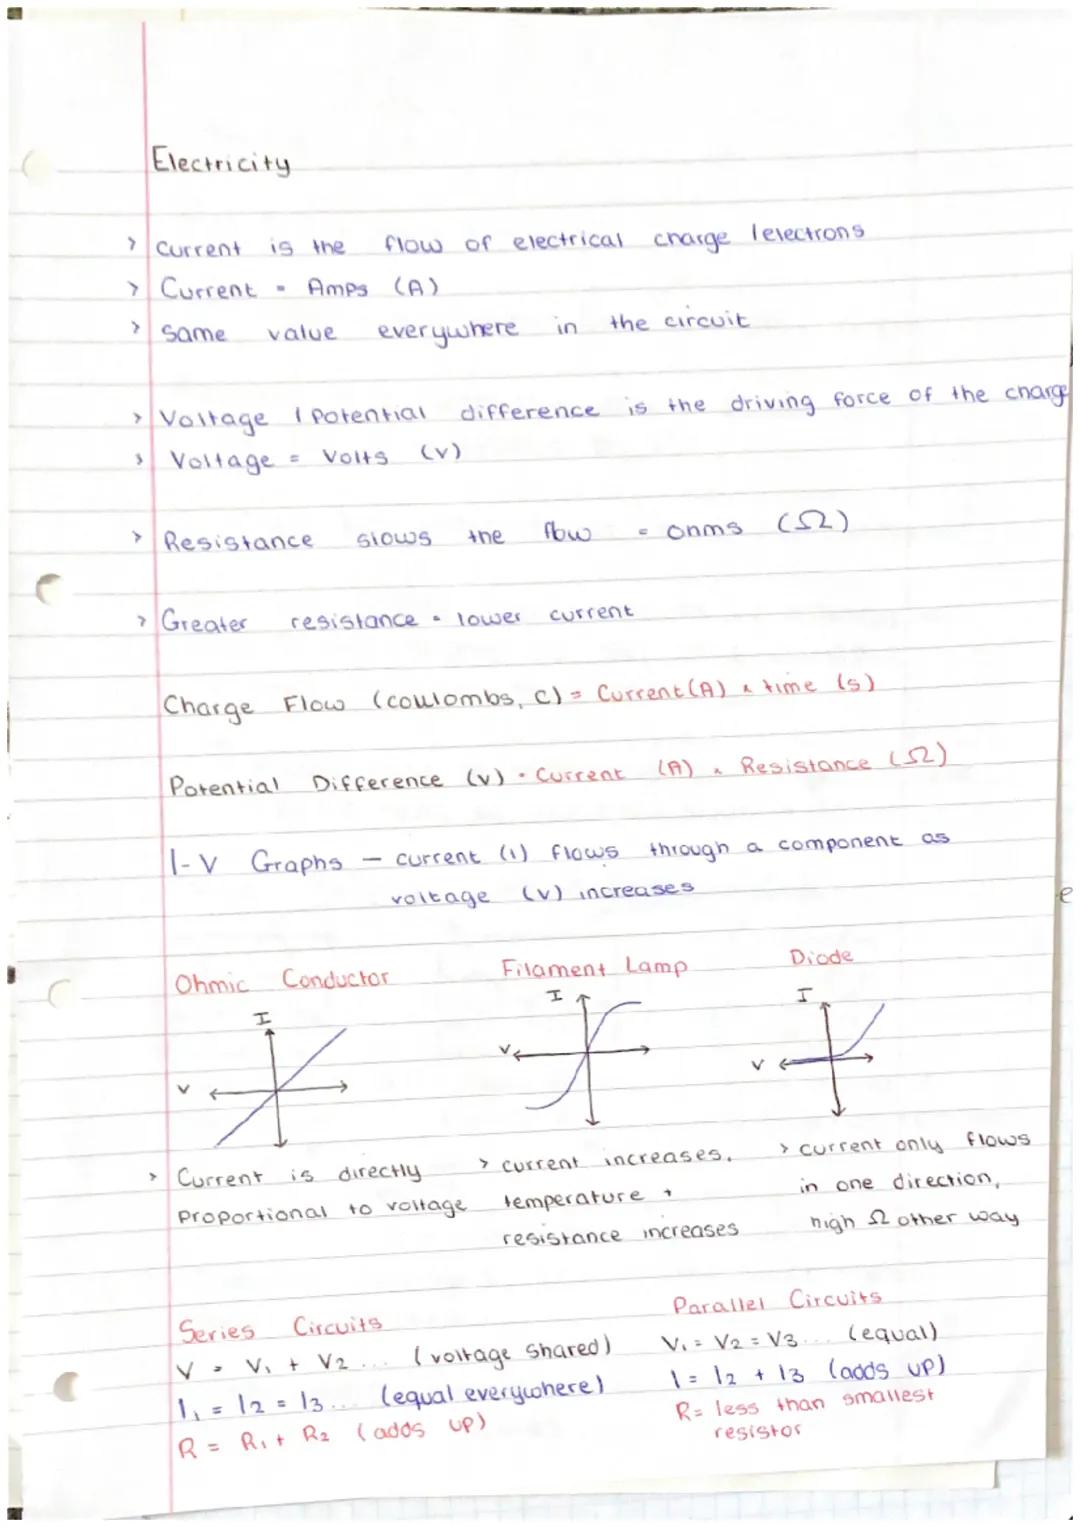 Electricity
> Current is the flow of electrical charge / electrons
> Current = Amps (A)
> Same value everywhere in the circuit
> Voltage / Potential difference is the driving force of the charge
> Voltage = Volts (V)
> Resistance slows the flow = ohms (Ω)
> Greater resistance = lower current
Charge Flow (coulombs, C) = Current (A) x time (s)
Potential Difference (V) = Current (A) x Resistance (Ω)
I-V Graphs – current (I) flows through a component as
voltage (V) increases
e
Ohmic Conductor Filament Lamp Diode
I I I
V V V
> Current is directly > current increases, > current only flows
proportional to voltage temperature + in one direction,
resistance increases high Ω other way
Series Circuits Parallel Circuits
V = V1 + V2 ... (voltage shared) V1 = V2 = V3 ... (equal)
I1 = I2 = I3 ... (equal everywhere) I = I2 + I3 (adds up)
R = R1 + R2 (adds up) R = less than smallest
resistor